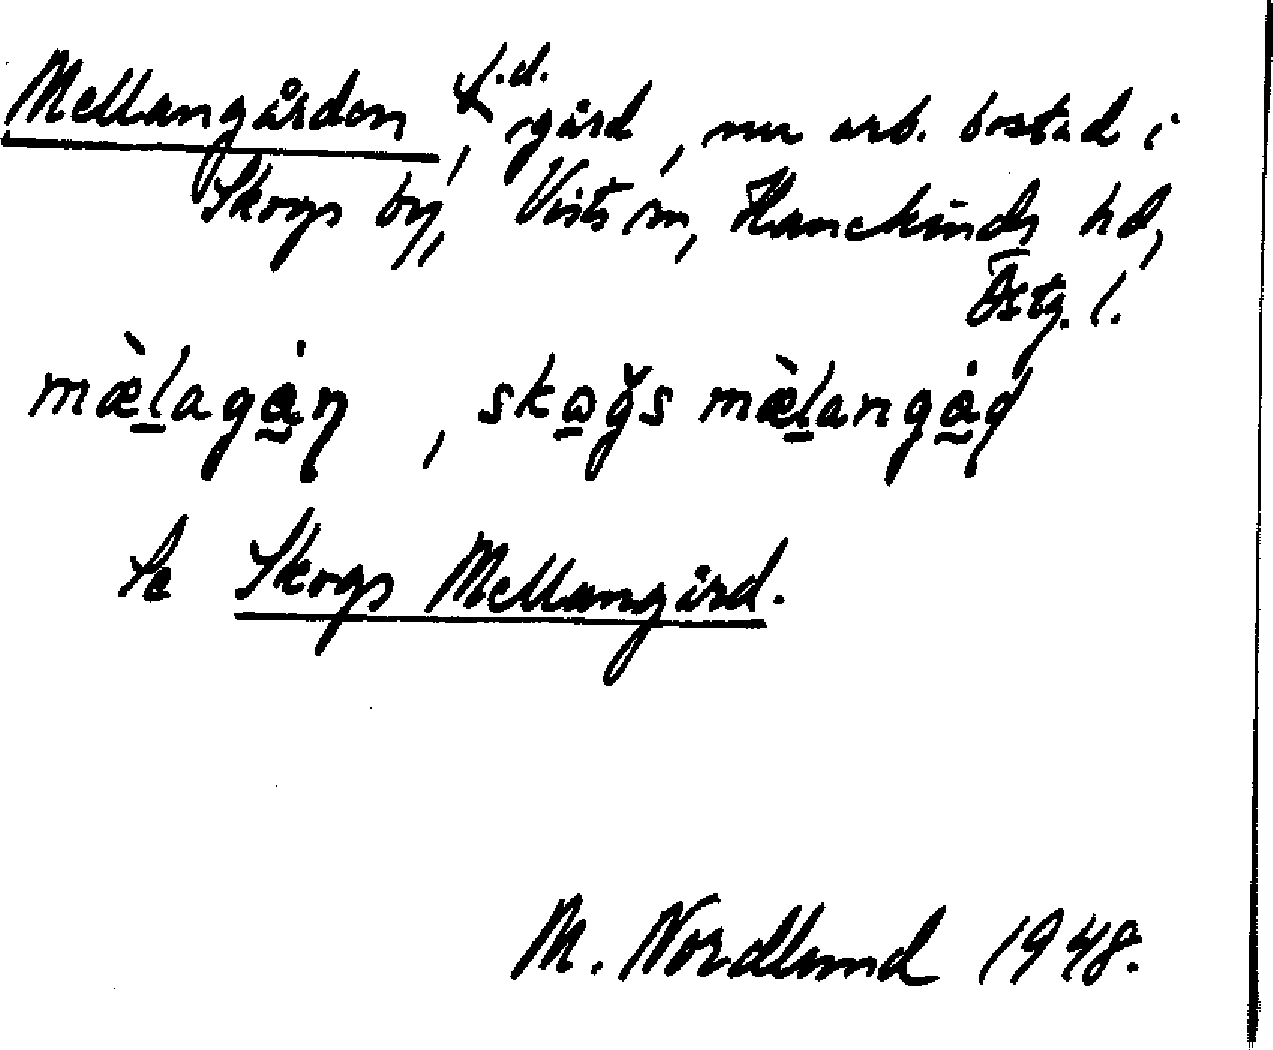 Mellangården, f.d. gård, nu arb. bostad i
Skogs by, Vists sn, Hanekinds hd,
Östg. l.
mæ̀lagȧ̊ɳ, skoǧs mæ̀langȧ̊ɖ
Se Skogs Mellangård.
M. Nordlund 1948.